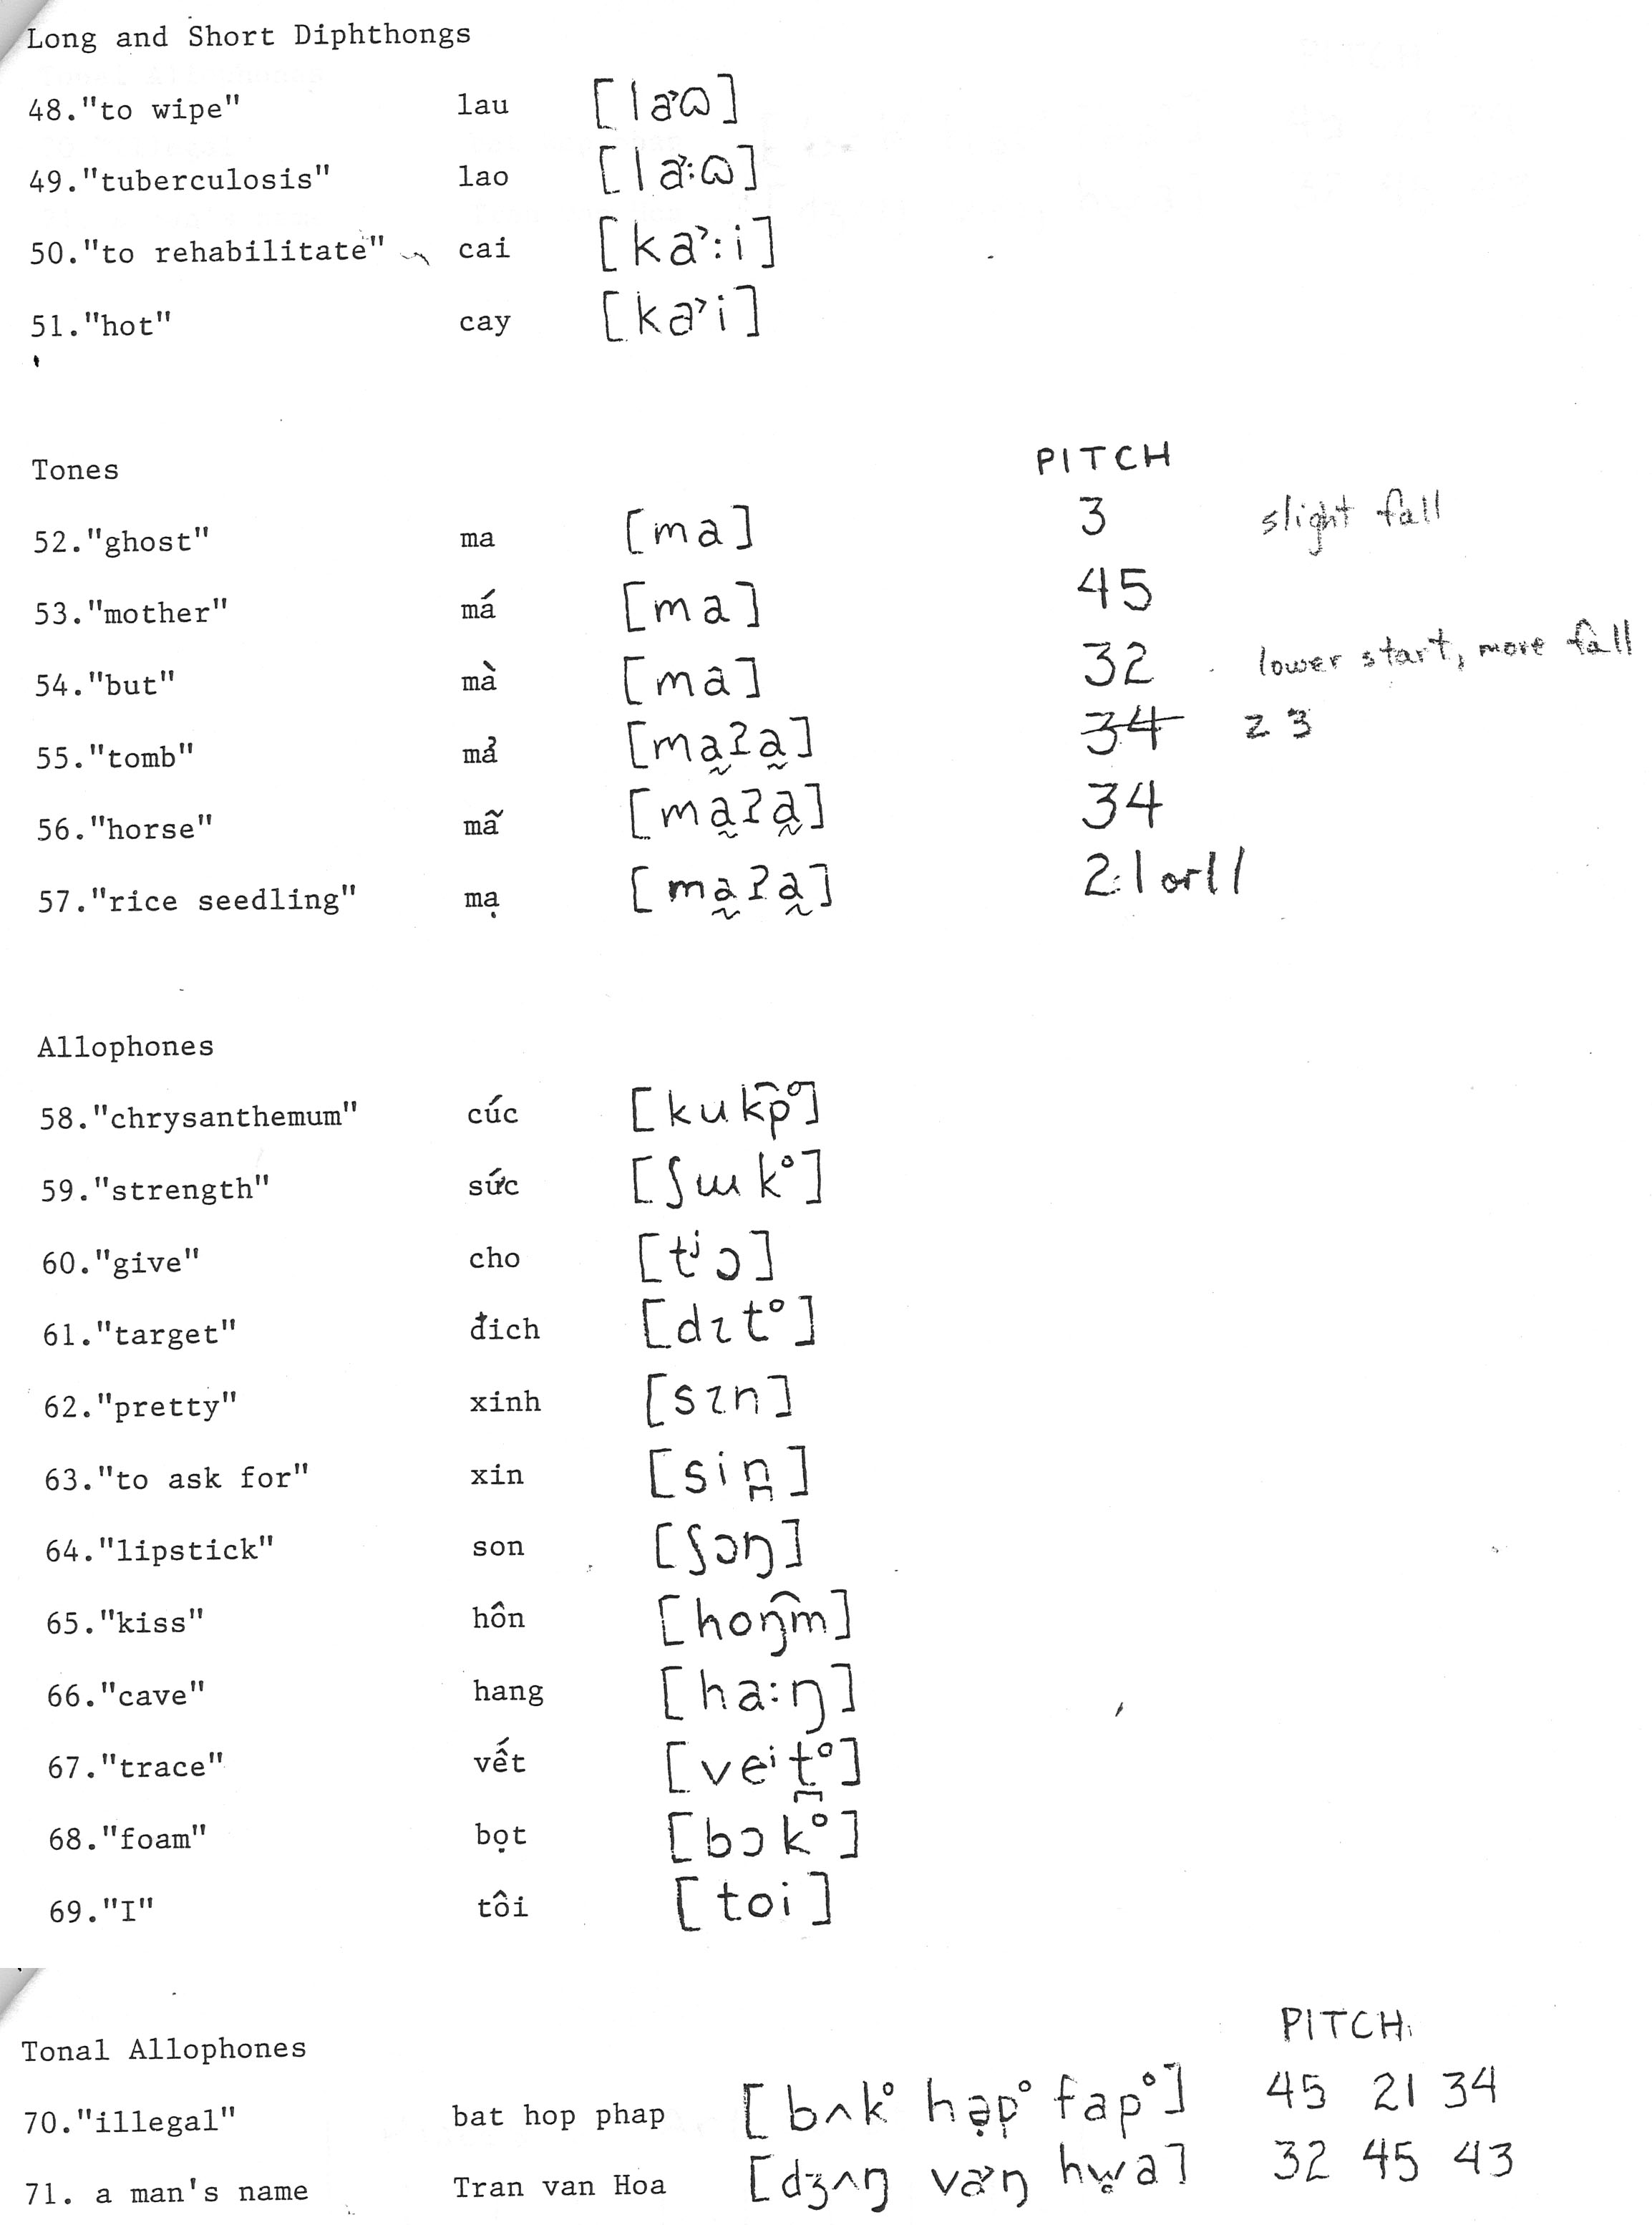 Long and Short Diphthongs
48."to wipe" lau [la˃ɷ]
49."tuberculosis" lao [la˃:ɷ]
50."to rehabilitate" cai [ka˃:i]
51."hot" cay [ka˃i]
Tones PITCH
52."ghost" ma [ma] 3 slight fall
53."mother" má [ma] 45
54."but" mà [ma] 32 lower start, more fall
55."tomb" mả [ma̰ʔa̰] 34 23
56."horse" mã [ma̰ʔa̰] 34
57."rice seedling" mạ [ma̰ʔa̰] 21 or 11
Allophones
58."chrysanthemum" cúc [kuk͡p°]
59."strength" sức [ʃɯk°]
60."give" cho [tʲɔ]
61."target" đich [dɪt°]
62."pretty" xinh [sɪn]
63."to ask for" xin [sin̪]
64."lipstick" son [ʃɔŋ]
65."kiss" hôn [hoŋ͡m]
66."cave" hang [ha:ŋ]
67."trace" vết [veⁱt̪°]
68."foam" bọt [bɔk°]
69."I" tôi [toi]
Tonal Allophones PITCH
70."illegal" bat hop phap [bʌk° hə̣p° fap°] 45 21 34
71. a man's name Tran van Hoa [dʒʌŋ va˃ŋ hw̥a] 32 45 43